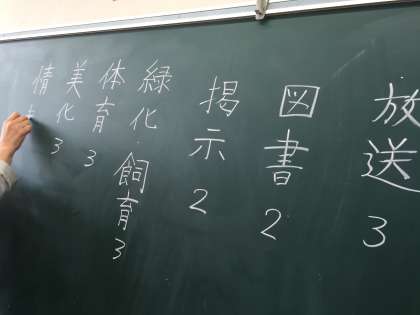 放送3
図書2
掲示2
緑化・飼育3
体育3
美化3
情